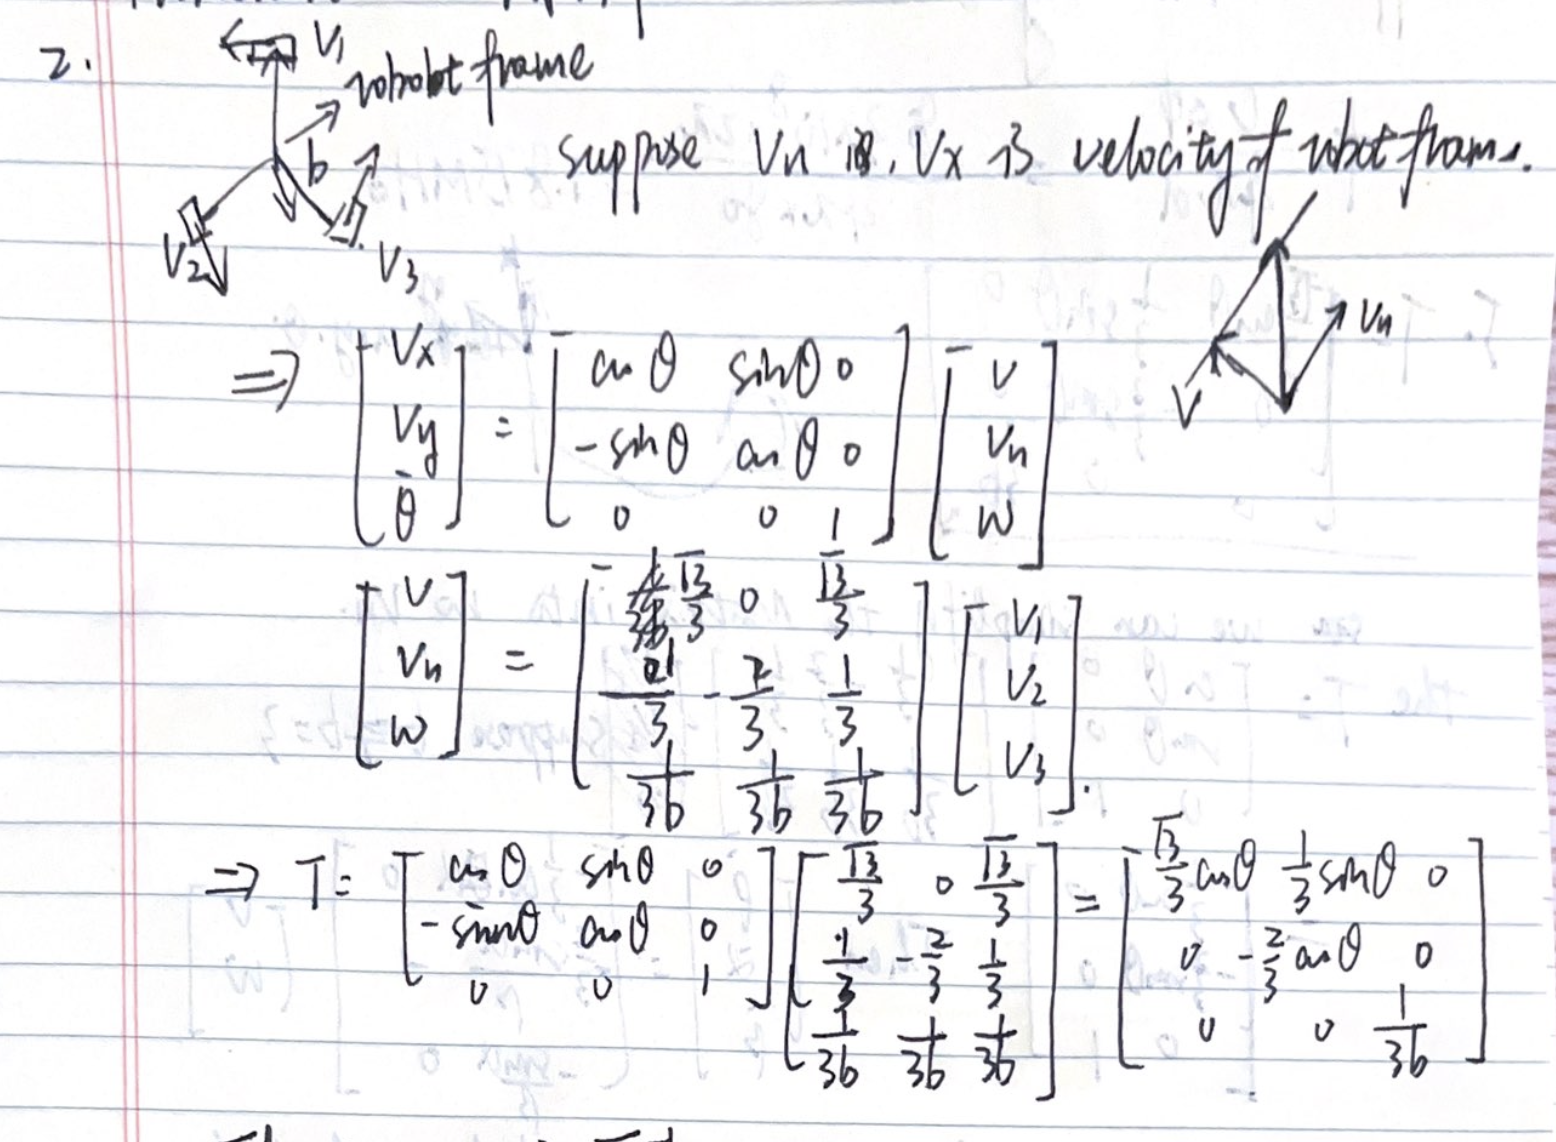 2.
V₁
robobt frame
b
V₂
V₃
suppose Vn is. Vx is velocity of robot frame.
Vn
V
⇒ [Vx Vy θ̇] = [cosθ sinθ 0
-sinθ cosθ 0
0 0 1] [V Vn W]
[V Vn W] = [√3/3 0 √3/3
1/3 -2/3 1/3
1/3b 1/3b 1/3b] [V₁ V₂ V₃].
⇒ T= [cosθ sinθ 0
-sinθ cosθ 0
0 0 1] [√3/3 0 √3/3
1/3 -2/3 1/3
1/3b 1/3b 1/3b] = [√3/3 cosθ 1/3 sinθ 0
0 -2/3 cosθ 0
0 0 1/3b]